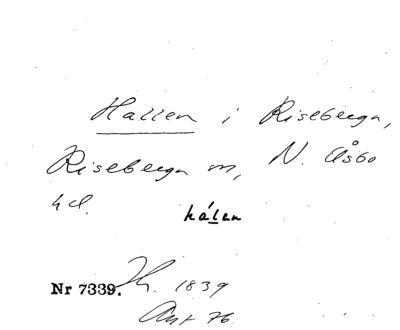 Hallen i Riseberga,
Riseberga sn, N. Åsbo
hd.
hálen
Nr 7339. Th. 1839
Ant 76